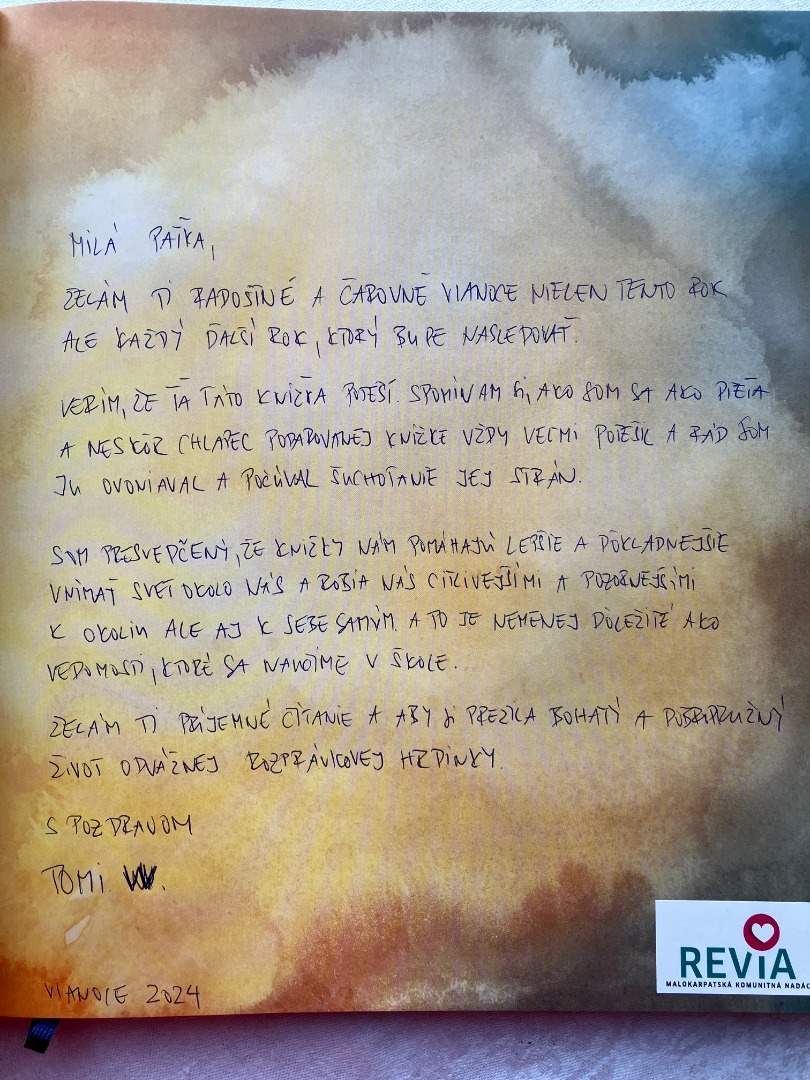 MILÁ PAŤKA,
ŽELÁM TI RADOSTNÉ A ČAROVNÉ VIANOCE NIELEN TENTO ROK
ALE KAŽDÝ ĎALŠÍ ROK, KTORÝ BUDE NASLEDOVAŤ.
VERÍM, ŽE ŤA TÁTO KNIŽKA POTEŠÍ. SPOMÍNAM SI, AKO SOM SA AKO DIEŤA
A NESKÔR CHLAPEC PODAROVANEJ KNIŽKE VŽDY VEĽMI POTEŠIL A RÁD SOM
JU OVONIAVAL A POČÚVAL ŠUCHOTANIE JEJ STRÁN.
SOM PRESVEDČENÝ, ŽE KNIŽKY NÁM POMÁHAJÚ LEPŠIE A DÔKLADNEJŠIE
VNÍMAŤ SVET OKOLO NÁS A ROBIA NÁS CITLIVEJŠÍMI A POZORNEJŠÍMI
K OKOLIU ALE AJ K SEBE SAMÝM. A TO JE NEMENEJ DÔLEŽITÉ AKO
VEDOMOSTI, KTORÉ SA NAUČÍME V ŠKOLE.
ŽELÁM TI PRÍJEMNÉ ČÍTANIE A ABY SI PREŽILA BOHATÝ A DOBRODRUŽNÝ
ŽIVOT ODVÁŽNEJ ROZPRÁVKOVEJ HRDINKY.
S POZDRAVOM
TOMI W.
VIANOCE 2024
REVIA
MALOKARPATSKÁ KOMUNITNÁ NADÁC